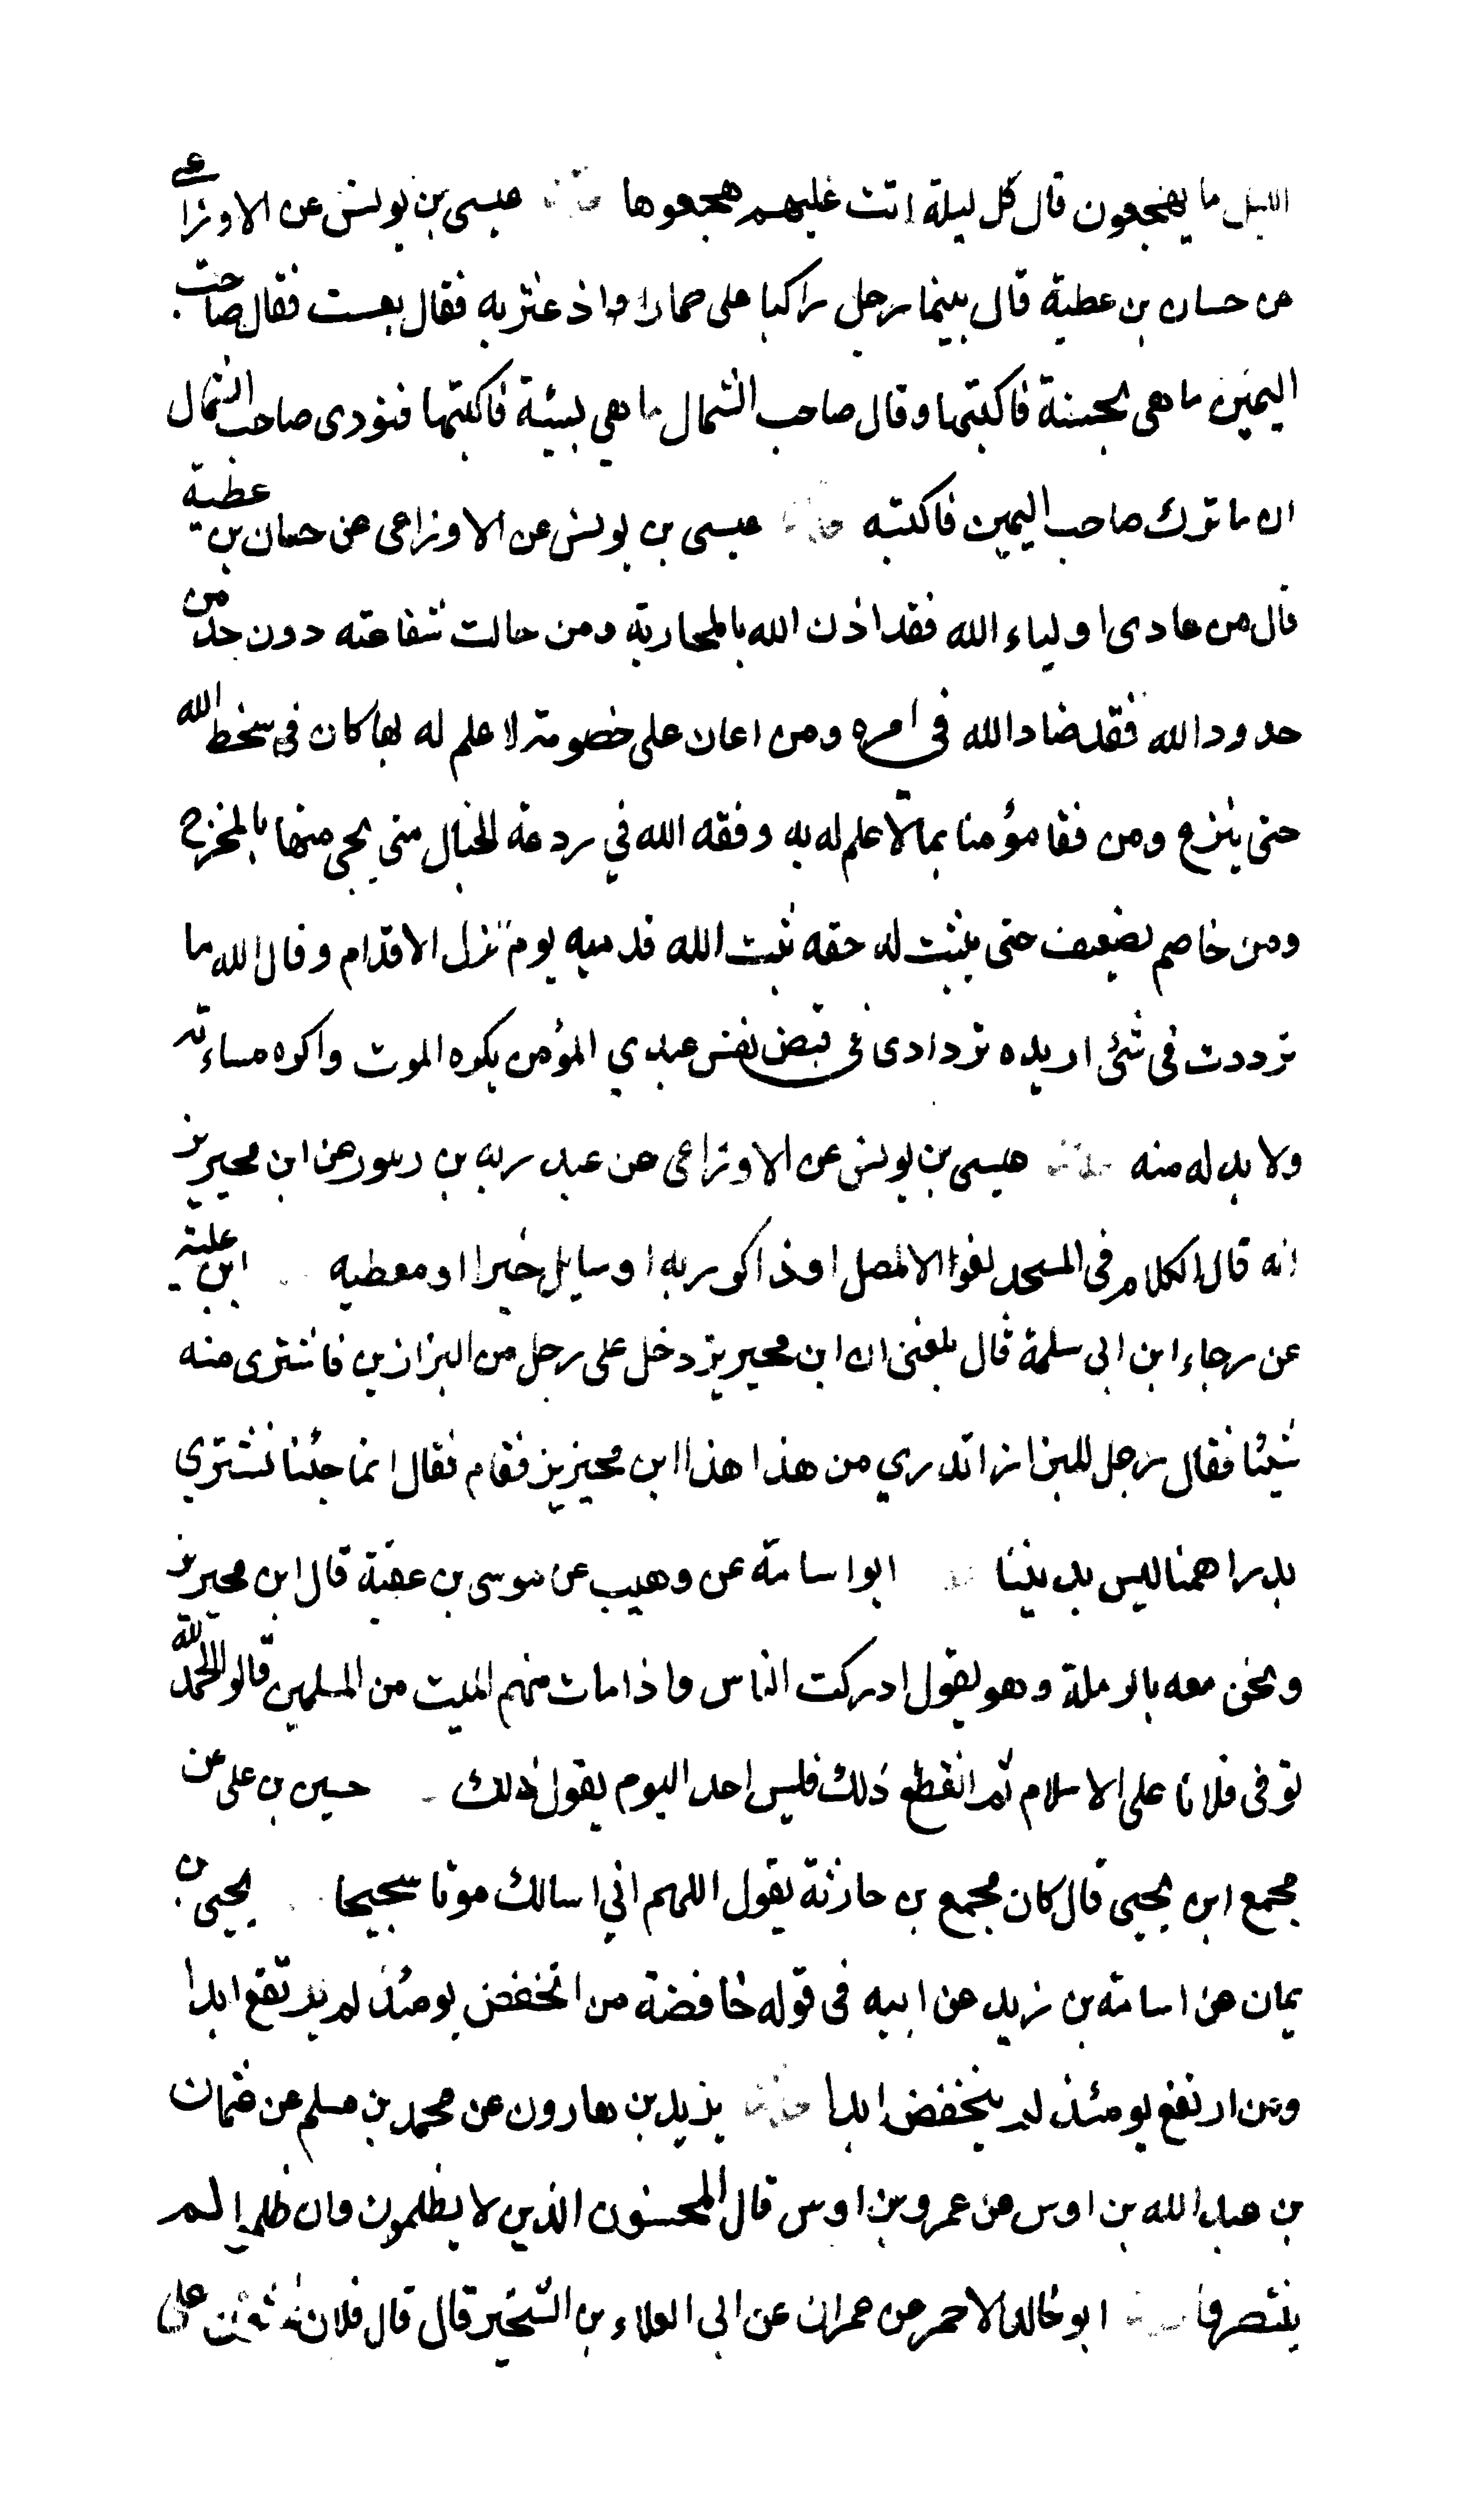 الليل ما يهجعون قال كل ليلة اتت عليهم هجعوها حدثنا عيسى بن يونس عن الاوزاعي
عن حسان بن عطية قال بينما رجل راكبا على حمار اذ عثر به فقال بعست فقال صاحب
اليمين ما هى بحسنة فاكتبها وقال صاحب الشمال ما هي بسيئة فاكتبها فنودى صاحب الشمال
ان ما ترك صاحب اليمين فاكتبه حدثنا عيسى بن يونس عن الاوزاعى عن حسان بن عطية
قال من عادى اولياء الله فقد اذن الله بالمحاربة ومن حالت شفاعته دون حد من
حدود الله فقد ضاد الله في امره ومن اعان على خصومة لا علم له بها كان في سخط الله
حتى ينزع ومن قفا مؤمنا بما لا علم له به وقفه الله في ردغة الخبال حتى يجى منها بالمخرج
ومن خاصم لضعيف حتى يثبت له حقه ثبت الله قدميه يوم تزل الاقدام وقال الله ما
ترددت في شئ اريده تردادى في قبض نفس عبدي المؤمن يكره الموت واكره مساءته
ولا بد له منه حدثنا عيسى بن يونس عن الاوزاعى عن عبد ربه بن عن ابن محيريز
انه قال الكلام في المسجد لغو الا لمصل او ذاكر ربه او سايل خيرا او معطيه ابن علية
عن رجاء ابن ابى سلمة قال بلغنى ان ابن محيريز دخل على رجل من البزازين فاشترى منه
شيئا فقال رجل للبزاز اتدري من هذا هذا ابن محيريز فقام فقال انما جئنا نشتري
بدراهمنا ليس بديننا ابو اسامة عن وهيب عن موسى بن عقبة قال ابن محيريز
ونحن معه بالرملة وهو يقول ادركت الناس واذا مات منهم الميت من المسلمين قالوا الحمد لله
توفى فلانا على الاسلام ثم انقطع ذلك فليس احد اليوم يقول ذلك حسين بن على عن
مجمع ابن يحيى قال كان مجمع بن حارثة يقول اللهم اني اسالك موتا سجيحا يحيى بن
يمان عن اسامة بن زيد عن ابيه في قوله خافضة من انخفض يومئذ لم يرتفع ابدا
ومن ارتفع يومئذ لم ينخفض ابدا حدثنا يزيد بن هارون عن محمد بن مسلم عن عثمان
بن عبد الله بن اوس عن عمرو بن اوس قال المحسنون الذين لا يظلمون وان ظلموا لم
ينتصروا حدثنا ابو خالد الاحمر عن عمران عن ابى العلاء بن الشخير قال قال فلان على